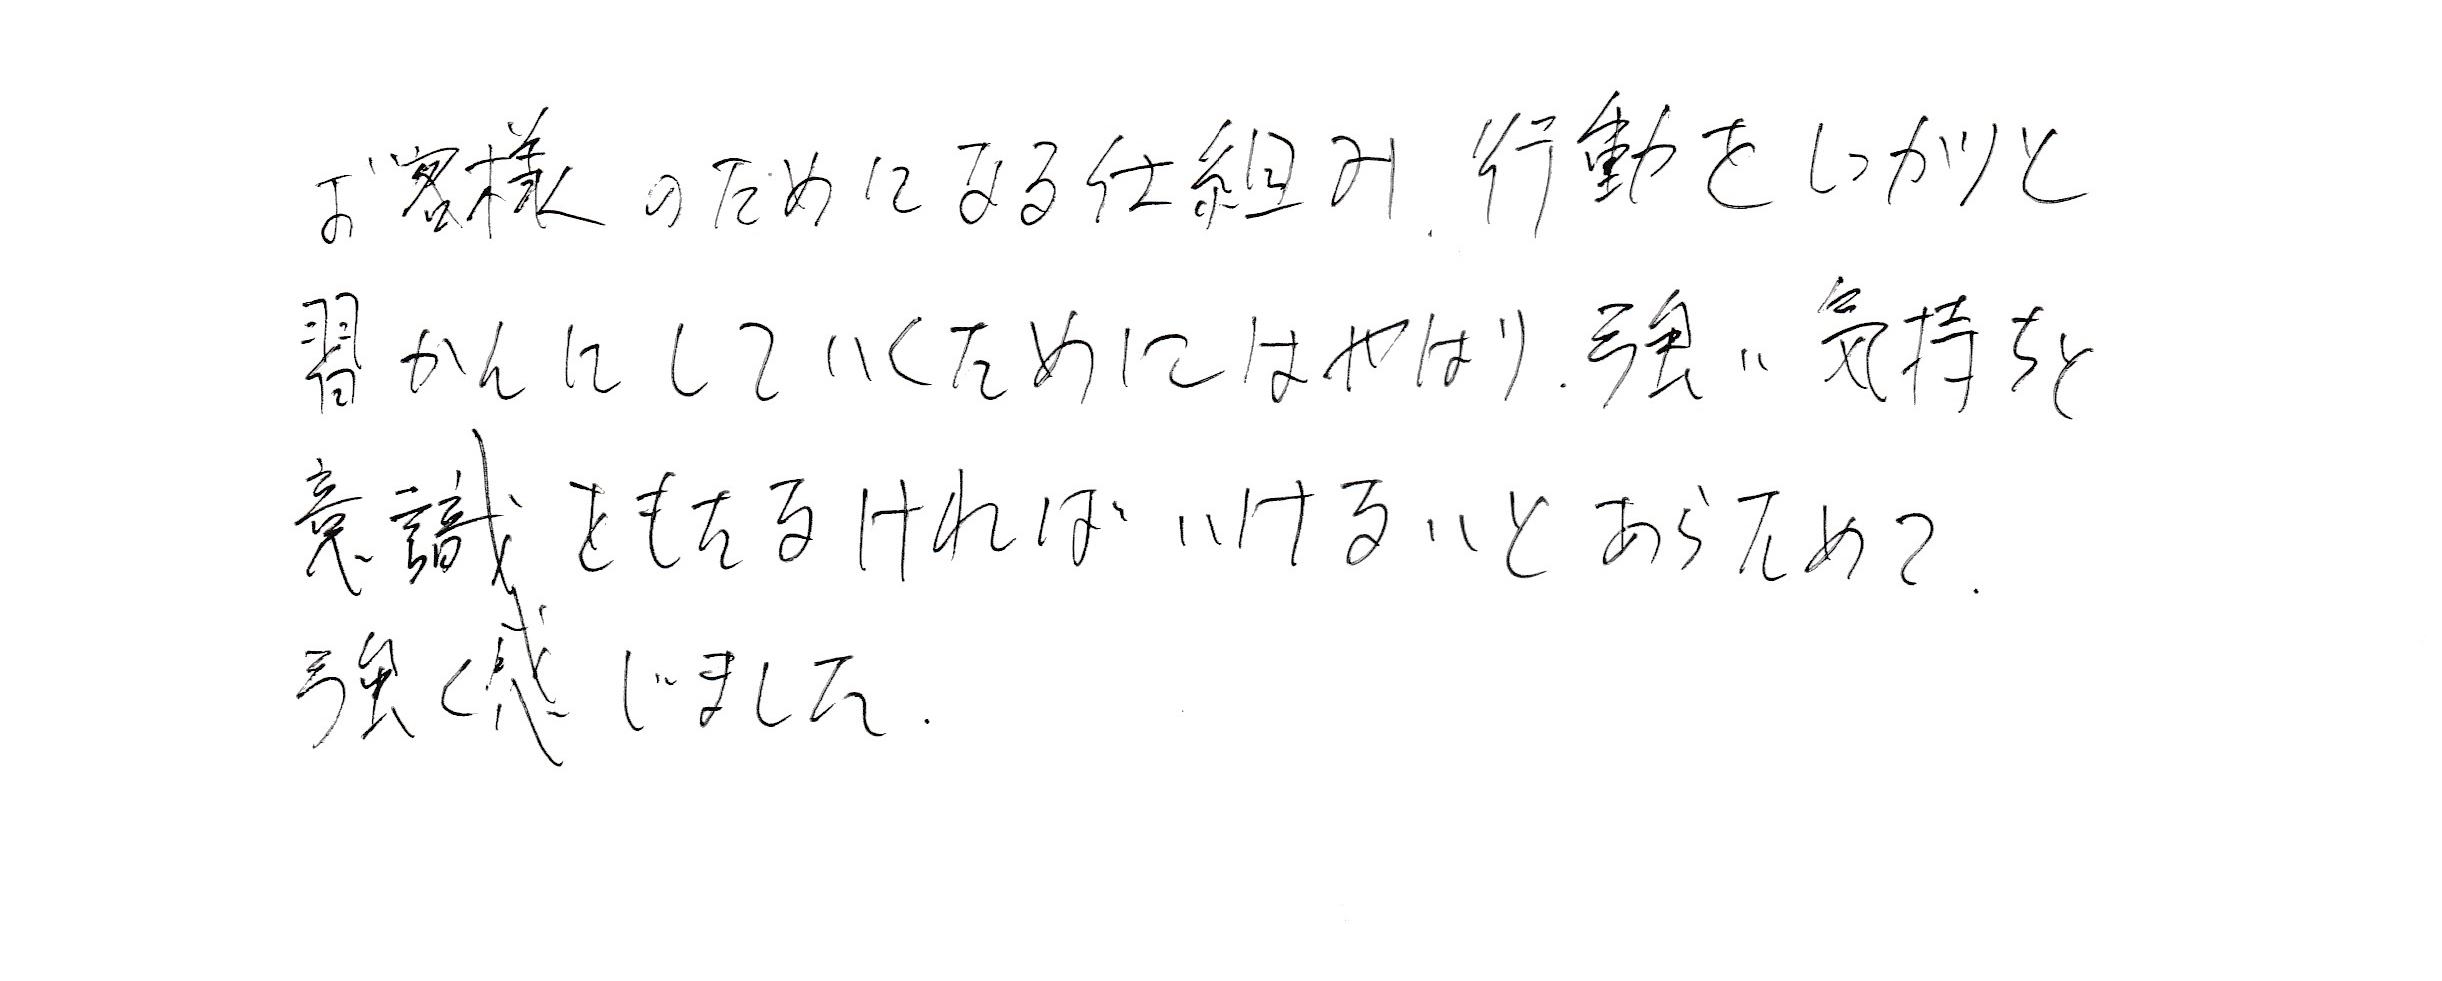 お客様のためになる仕組み、行動をしっかりと
習かんにしていくためにはやはり、強い気持ちと
意識をもたなければいけないとあらためて、
強く感じました。